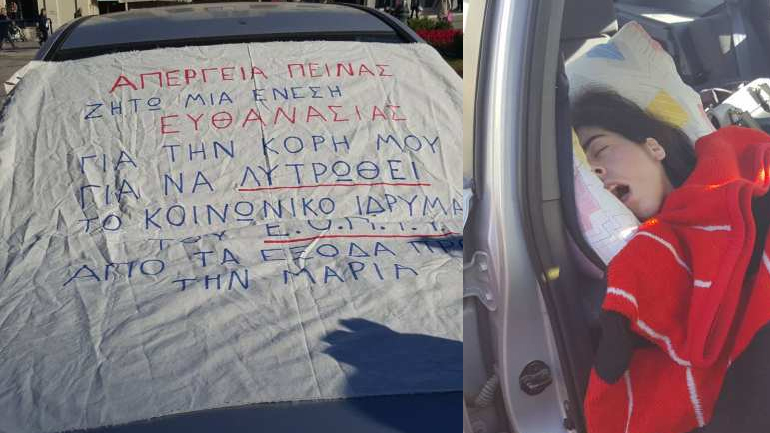 ΑΠΕΡΓΕΙΑ ΠΕΙΝΑΣ
ΖΗΤΩ ΜΙΑ ΕΝΕΣΗ
ΕΥΘΑΝΑΣΙΑΣ
ΓΙΑ ΤΗΝ ΚΟΡΗ ΜΟΥ
ΓΙΑ ΝΑ ΛΥΤΡΩΘΕΙ
ΤΟ ΚΟΙΝΩΝΙΚΟ ΙΔΡΥΜΑ
ΤΟΥ
ΑΠΟ ΤΑ ΕΞΟΔΑ ΠΡΟ
ΤΗΝ ΜΑΡΙΑ